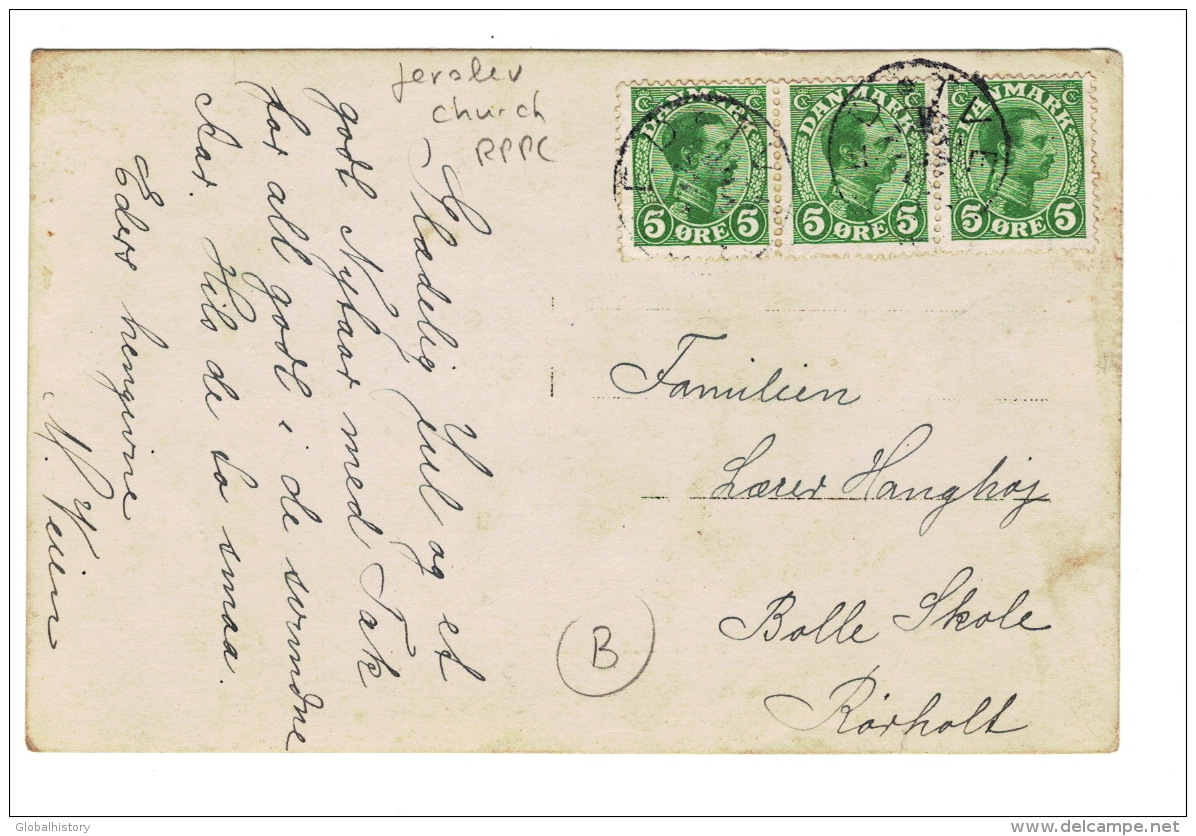 Jerslev
church
RPPC
Glædelig Jul og et
godt Nytaar med Tak
for alt godt i de svundne
Aar. Hils de to smaa.
Eders hengivne
DANMARK
5 ØRE 5
DANMARK
5 ØRE 5
DANMARK
5 ØRE 5
Familien
Lærer Hanghøj
Bolle Skole
Rørholt
B
Globalhistory
www.delcampe.net